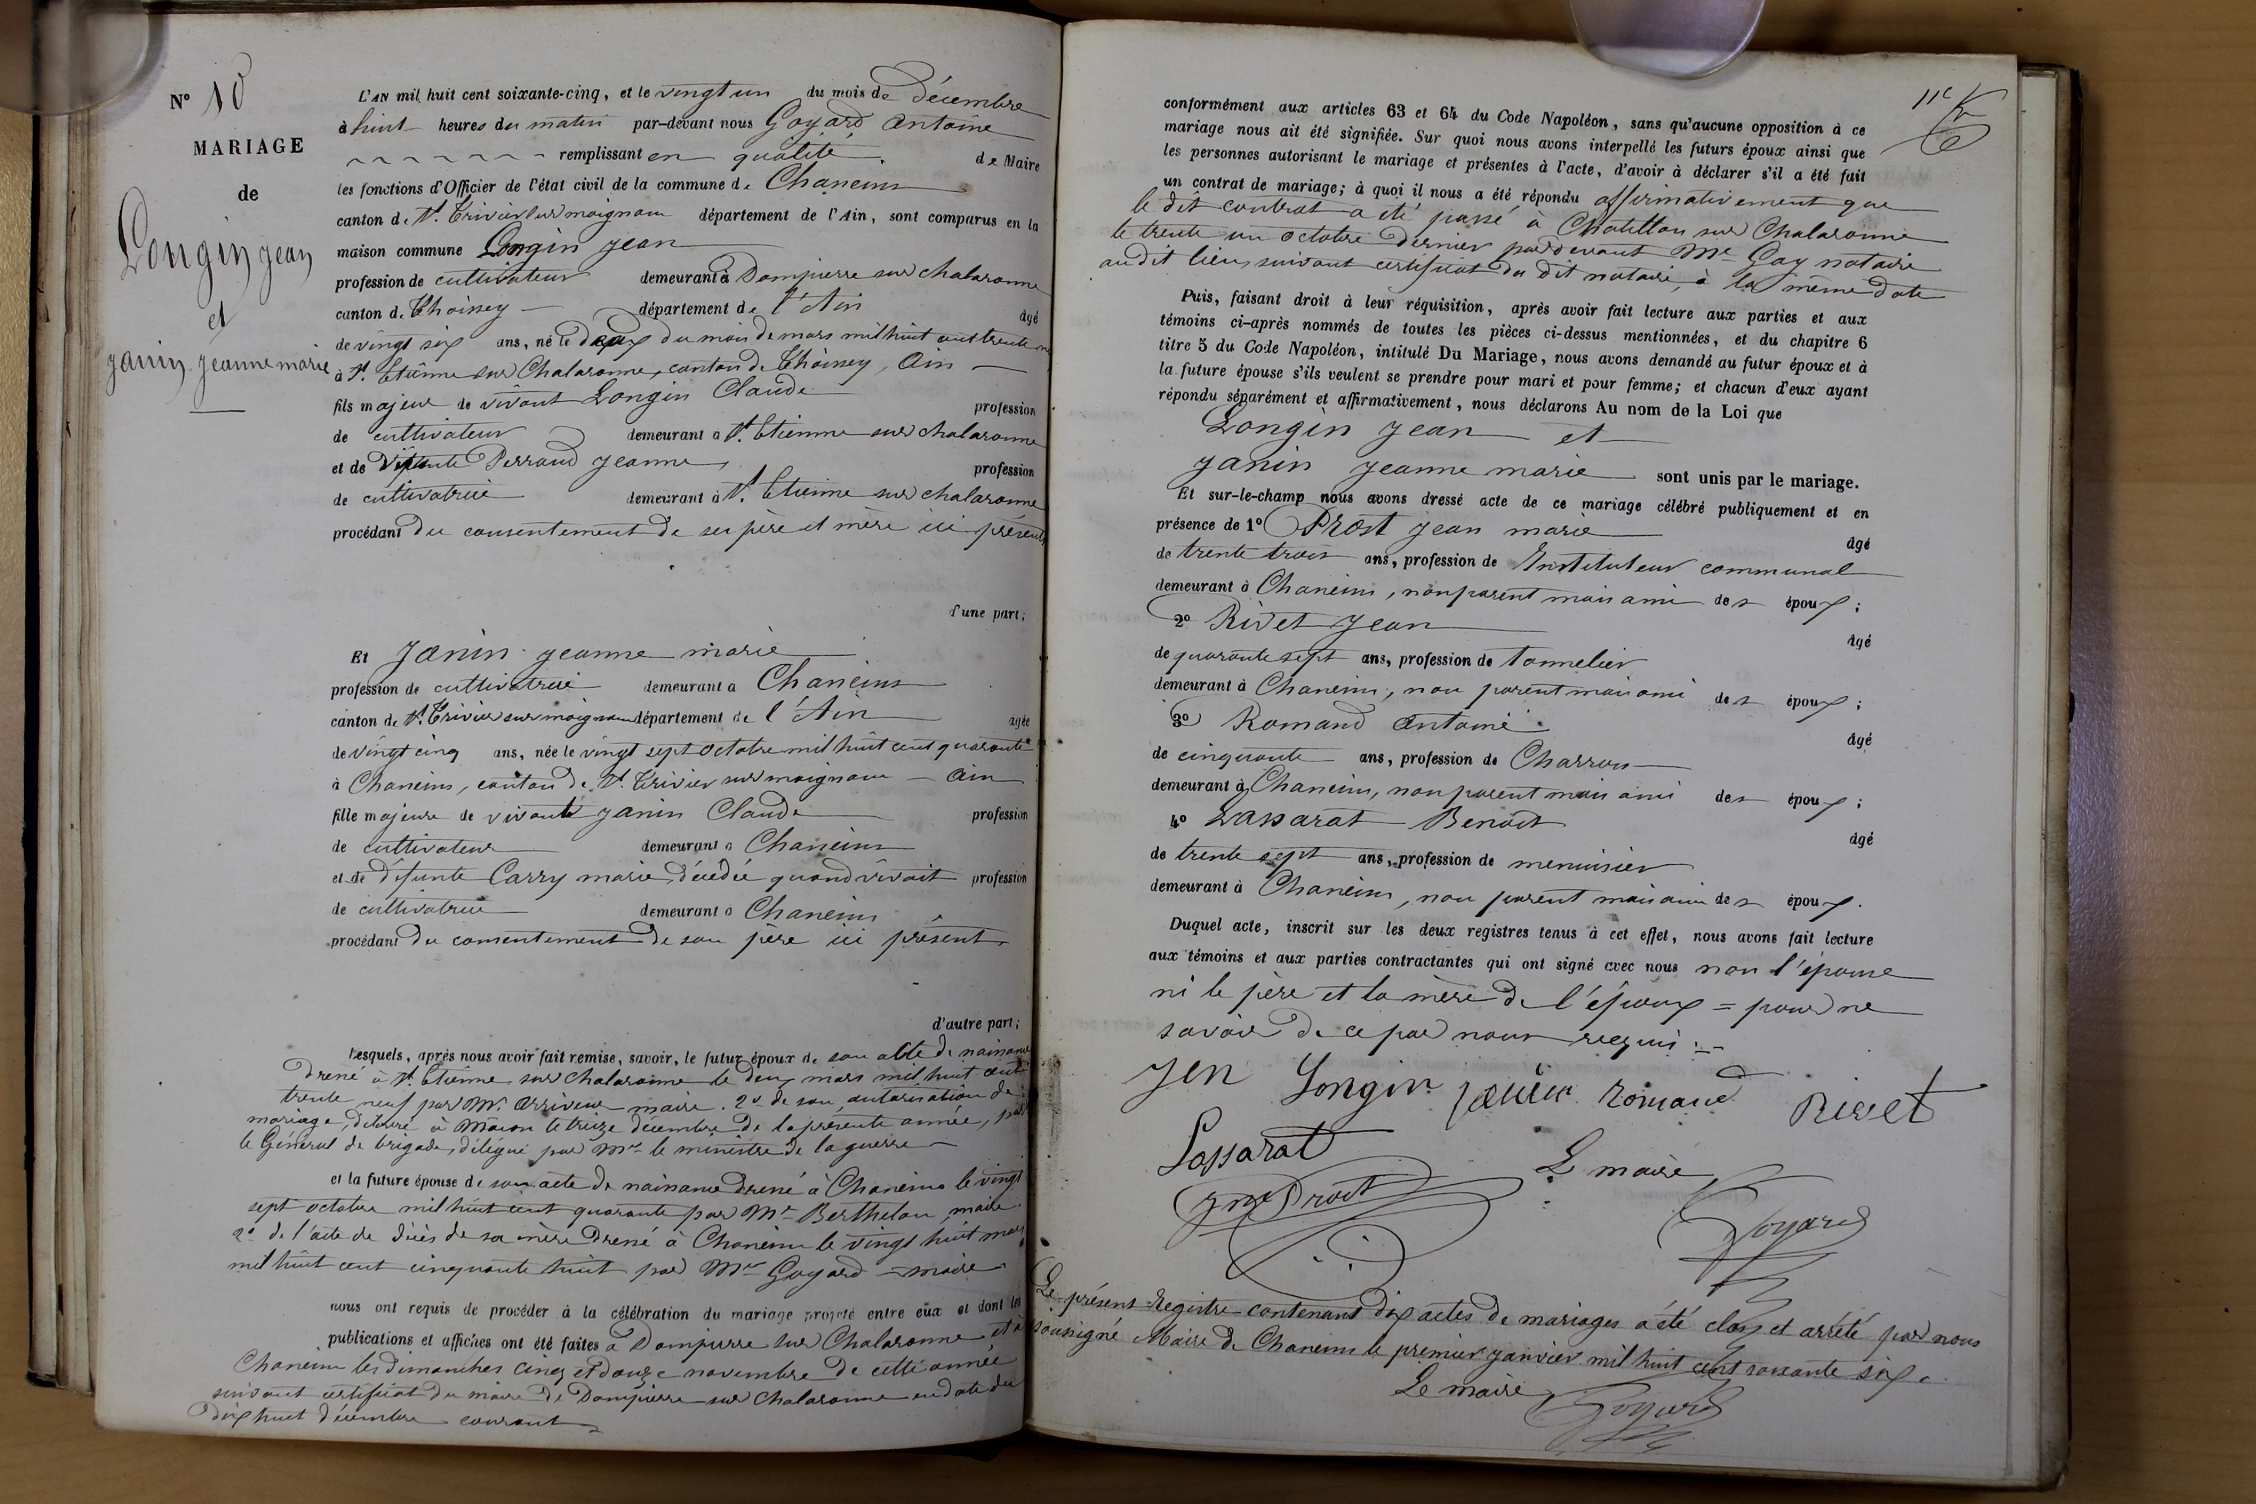 N° 10
MARIAGE
de
Longin jean
et
janin jeanne marie
L'AN mil huit cent soixante-cinq, et le vingt un du mois de décembre
à huit heures du matin par-devant nous Goyard antoine
remplissant en qualité de Maire
les fonctions d'Officier de l'état civil de la commune de Chaneins
canton de St. Trivier sur moignans département de l'Ain, sont comparus en la
maison commune Longin jean
profession de cultivateur demeurant à Dompierre sur chalaronne
canton de Thoissey département de l'Ain âgé
de vingt six ans, né le deux du mois de mars mil huit cent trente
à St. Etienne sur Chalaronne, canton de Thoissey, Ain
fils majeur de vivant Longin Claude profession
de cultivateur demeurant à St. Etienne sur chalaronne
et de vivante Perraud jeanne, profession
de cultivatrice demeurant à St. Etienne sur chalaronne
procédant du consentement de ses père et mère ici présents
d'une part;
Et janin jeanne marie
profession de cultivatrice demeurant à Chaneins
canton de St. Trivier sur moignans département de l'Ain agée
de vingt cinq ans, née le vingt sept octobre mil huit cent quarante
à Chaneins, canton de St. Trivier sur moignans Ain
fille majeure de vivant janin Claude profession
de cultivateur demeurant à Chaneins
et de défunte Carry marie, décédée quand vivait profession
de cultivatrice demeurant à Chaneins
procédant du consentement de son père ici présent.
d'autre part;
Lesquels, après nous avoir fait remise, savoir, le futur époux de son acte de naissance
dressé à St. Etienne sur chalaronne le deux mars mil huit cent
trente neuf par Mr. arriveur maire. 2° de son autorisation de
mariage, délivré à Macon le treize décembre de la présente année, par
le Général de brigade, délégué par Mr. le ministre de la guerre
et la future épouse de son acte de naissance dressé à Chaneins le vingt
sept octobre mil huit cent quarante par Mr. Berthelon maire.
2° de l'acte de décès de sa mère dressé à Chaneins le vingt huit mars
mil huit cent cinquante huit par Mr Goyard maire
nous ont requis de procéder à la célébration du mariage projeté entre eux et dont les
publications et affiches ont été faites à Dompierre sur Chalaronne et à
Chaneins les dimanches cinq et douze novembre de cette année
suivant certificat du maire de Dompierre sur chalaronne en date du
dix huit décembre courant
11e
conformément aux articles 63 et 64 du Code Napoléon, sans qu'aucune opposition à ce
mariage nous ait été signifiée. Sur quoi nous avons interpellé les futurs époux ainsi que
les personnes autorisant le mariage et présentes à l'acte, d'avoir à déclarer s'il a été fait
un contrat de mariage; à quoi il nous a été répondu affirmativement que
le dit contrat a été passé à Chatillon sur Chalaronne
le trente un octobre dernier par devant Me Gay notaire
au dit lieu, suivant certificat du dit notaire, à la même date
Puis, faisant droit à leur réquisition, après avoir fait lecture aux parties et aux
témoins ci-après nommés de toutes les pièces ci-dessus mentionnées, et du chapitre 6
titre 5 du Code Napoléon, intitulé Du Mariage, nous avons demandé au futur époux et à
la future épouse s'ils veulent se prendre pour mari et pour femme; et chacun d'eux ayant
répondu séparément et affirmativement, nous déclarons Au nom de la Loi que
Longin jean et
janin jeanne marie sont unis par le mariage.
Et sur-le-champ nous avons dressé acte de ce mariage célébré publiquement et en
présence de 1° Prost jean marie âgé
de trente trois ans, profession de Instituteur communal
demeurant à Chaneins, non parent mais ami des époux;
2° Rivet jean âgé
de quarante sept ans, profession de tonnelier
demeurant à Chaneins, non parent mais ami des époux;
3° Romand antoine âgé
de cinquante ans, profession de Charron
demeurant à Chaneins, non parent mais ami des époux;
4° Lassarat Benoit âgé
de trente sept ans, profession de menuisier
demeurant à Chaneins, non parent mais ami des époux.
Duquel acte, inscrit sur les deux registres tenus à cet effet, nous avons fait lecture
aux témoins et aux parties contractantes qui ont signé avec nous non l'épouse
ni le père et la mère de l'époux = pour ne
savoir de ce par nous requis.
Jen Longin janin Romand Rivet
Lassarat
Le maire
Jne Prost Goyard
Le présent Registre contenant dix actes de mariages a été clos et arrêté par nous
soussigné Maire de Chaneins le premier janvier mil huit cent soixante six.
Le maire
Goyard